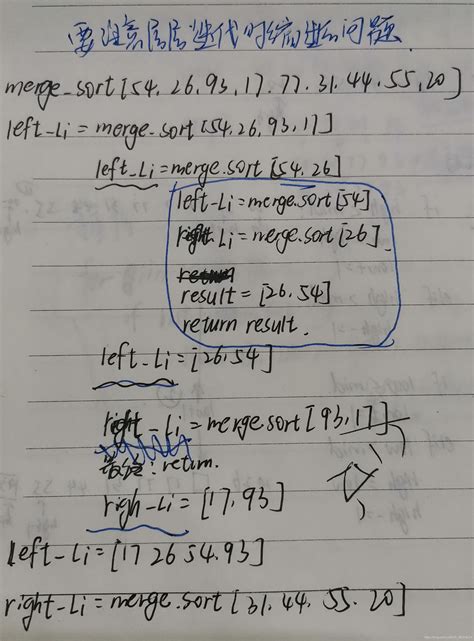 要注意层层迭代时缩进问题.
merge-sort[54.26.93.17.77.31.44.55.20]
left-li = merge-sort[54.26.93.17]
left-li = merge.sort[54.26]
left-li = merge.sort[54]
right-li = merge.sort[26]
result = [26.54]
return result.
left-li = [26.54]
right-li = merge.sort[93.17]
return.
righ-li = [17.93]
left-li = [17 26 54.93]
right-li = merge.sort[31.44.55.20]